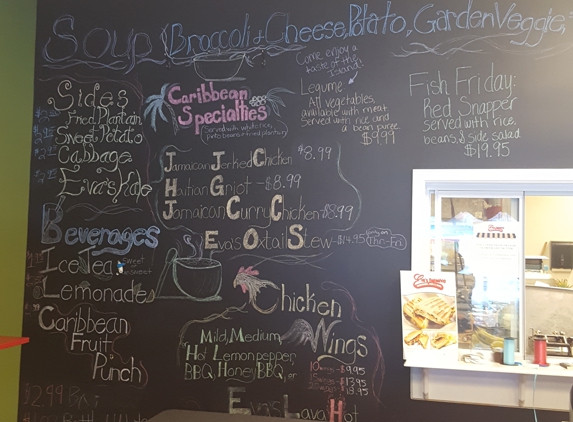 Soup (Broccoli + Cheese, Potato, Garden Veggie,
Sides
Fried Plantain
Sweet Potato
Cabbage
Eva's Kale
Beverages
Ice Tea
Sweet
Lemonade
Caribbean
Fruit
Punch
$2.99
Caribbean
Specialties
(Served with white rice,
Jamaican Jerked Chicken $8.99
Haitian Griot - $8.99
Jamaican Curry Chicken - $8.99
Eva's Oxtail Stew - $14.95
Thu-Fri
Come enjoy a
taste of the
Islands
Legume
All vegetables,
available with meat.
Served with rice and
a bean puree
$9.99
Fish Friday:
Red Snapper
served with rice,
beans, & side salad
$19.95
Chicken
Wings
Mild, Medium,
Hot Lemonpepper
BBQ, Honey BBQ, or
Eva's Lava Hot
$9.95
$13.95